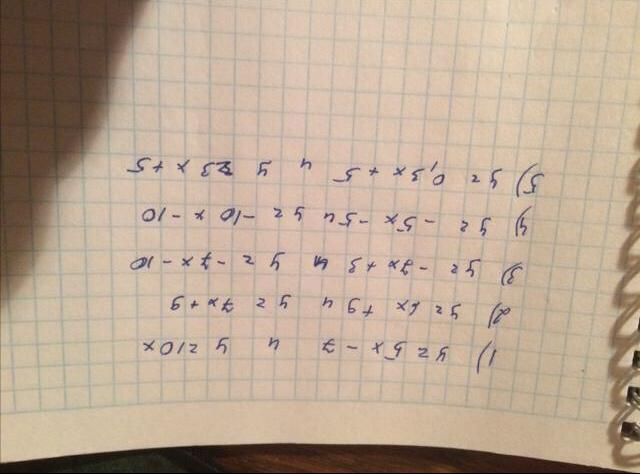 1) y = 5x - 7 и y = 10x
2) y = 6x + 9 и y = 7x + 9
3) y = -7x + 3 и y = -7x - 10
4) y = -5x - 5 и y = -10x - 10
5) y = 0,3x + 5 и y = 3x + 5